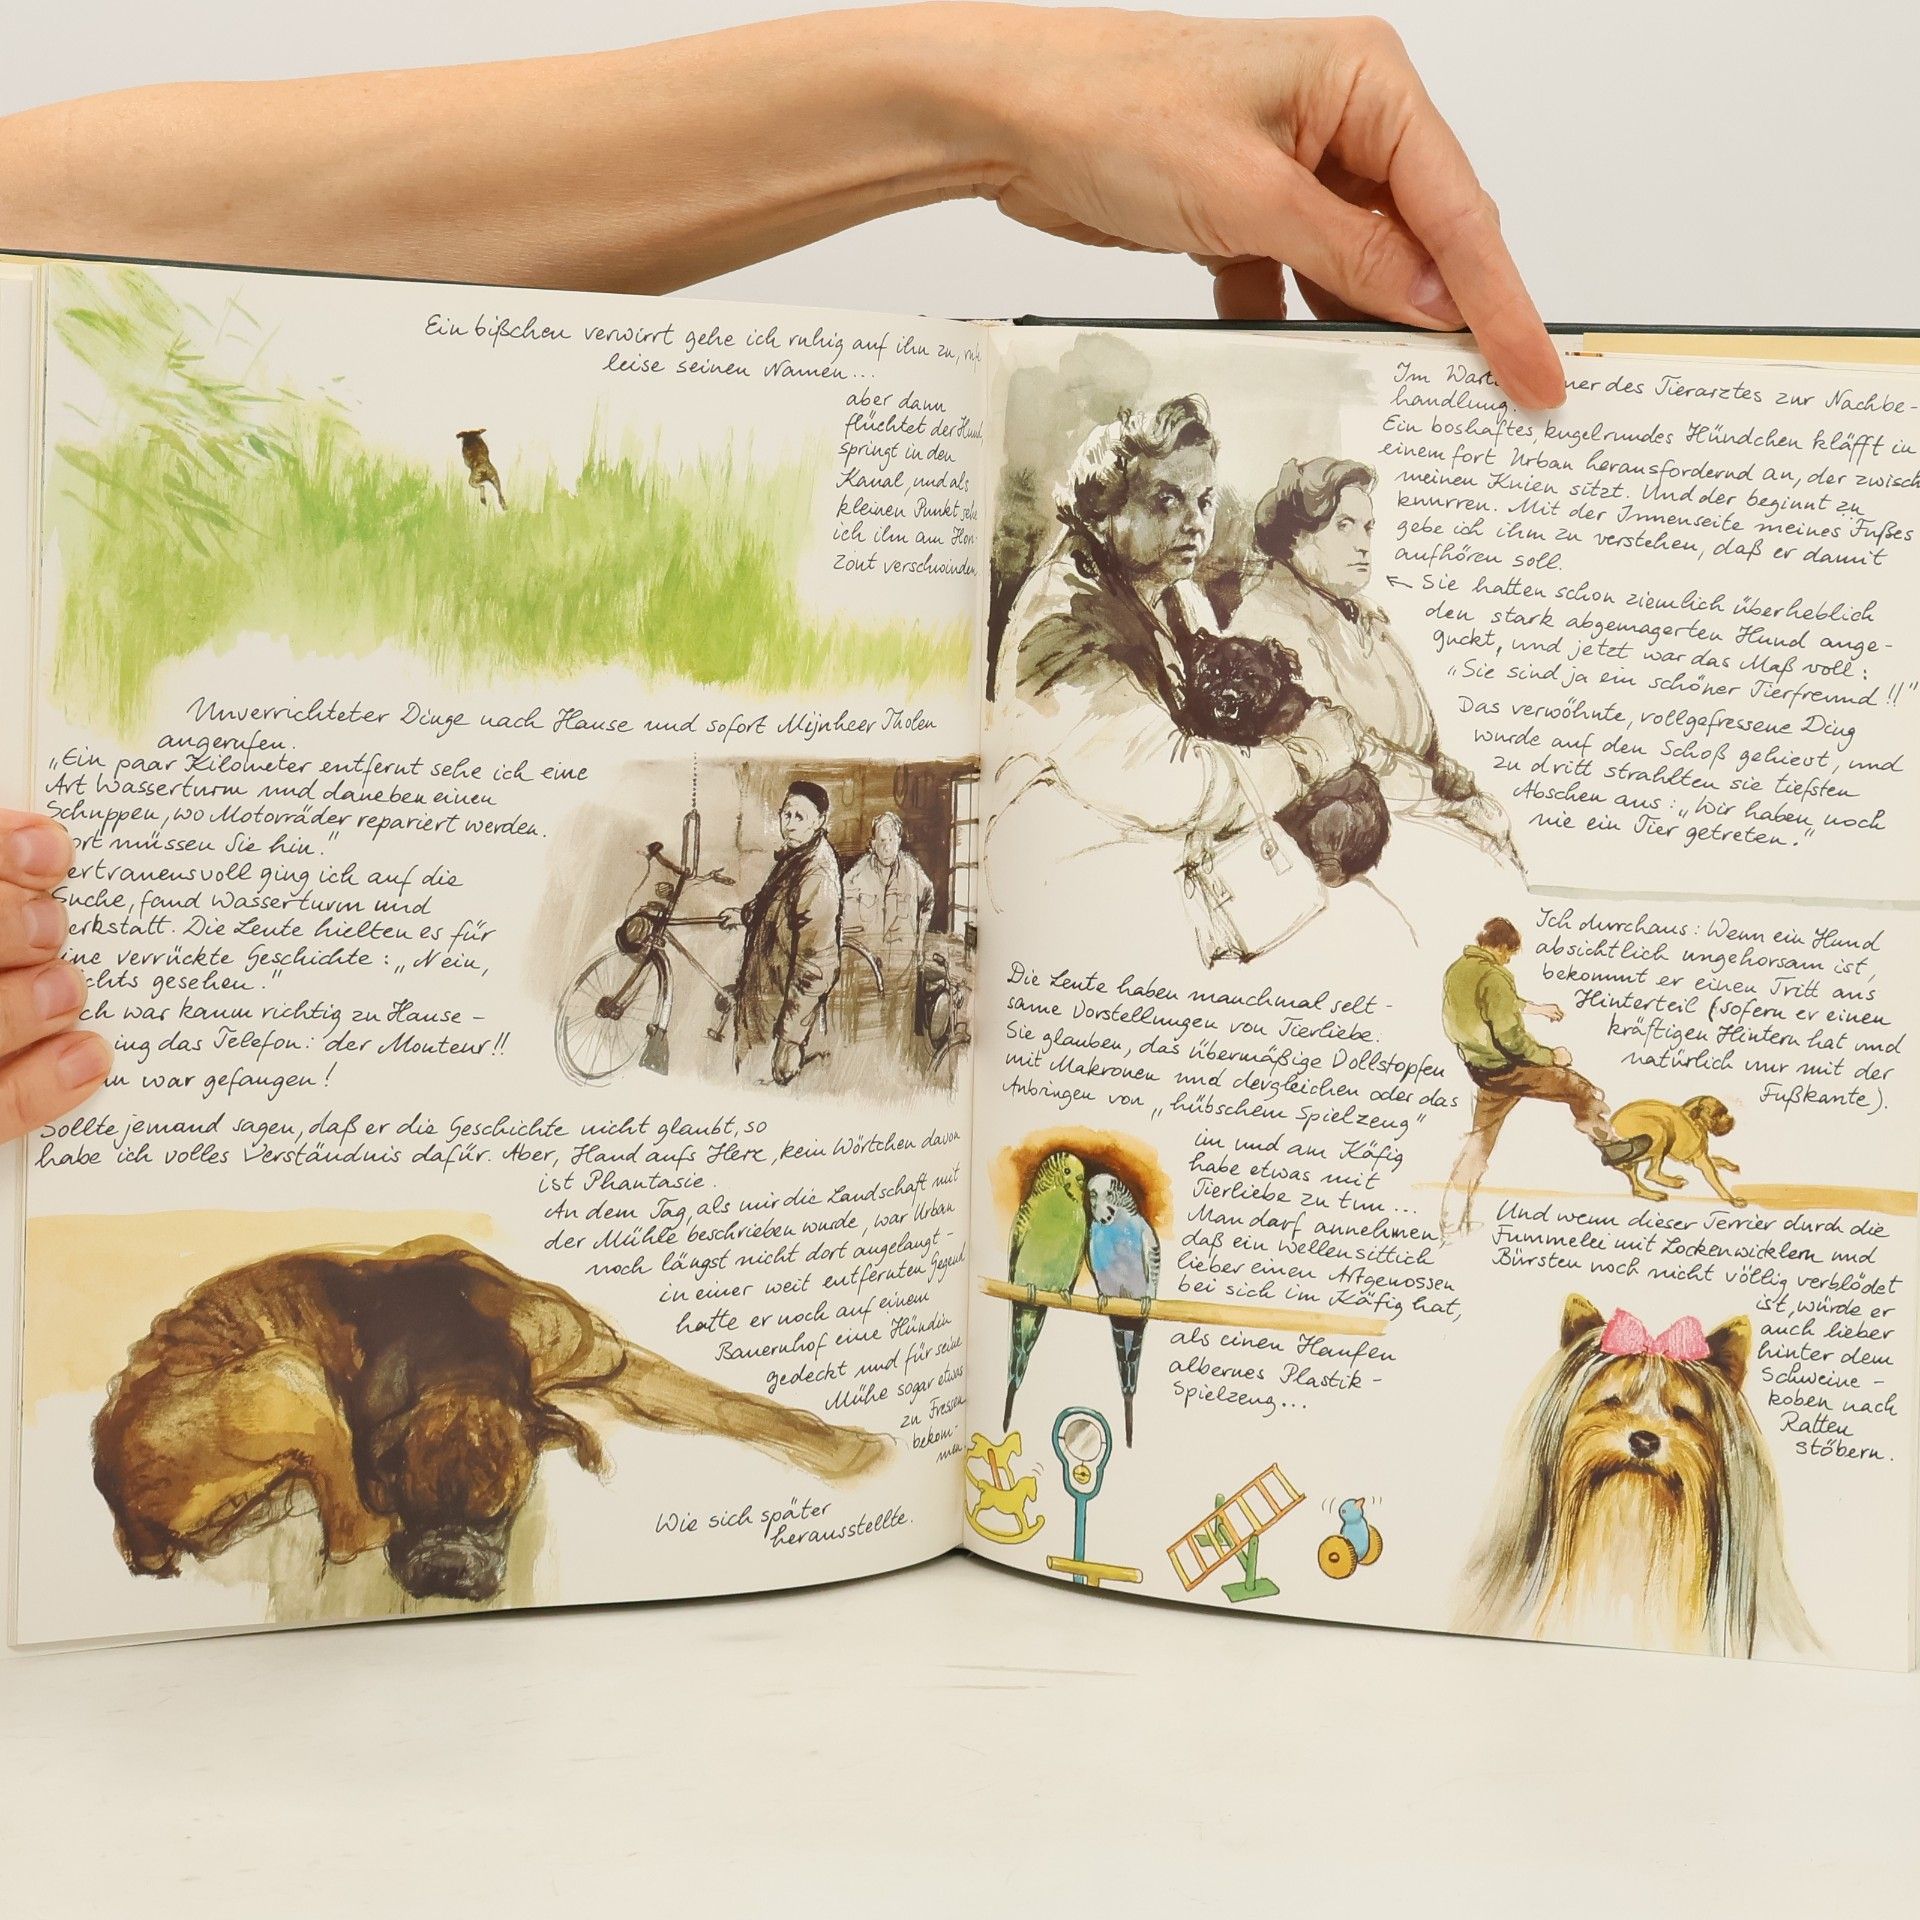 Ein bißchen verwirrt gehe ich ruhig auf ihn zu,
leise seinen Namen...
aber dann
flüchtet der Hund,
springt in den
Kanal, und als
kleinen Punkt sehe
ich ihn am Hori-
zont verschwinden.
Unverrichteter Dinge nach Hause und sofort Mijnheer Tholen
angerufen.
„Ein paar Kilometer entfernt sehe ich eine
Art Wasserturm und daneben einen
Schuppen, wo Motorräder repariert werden.
ort müssen Sie hin."
ertrauensvoll ging ich auf die
Suche, fand Wasserturm und
erkstatt. Die Leute hielten es für
ine verrückte Geschichte: „Nein,
ichts gesehen."
ch war kaum richtig zu Hause -
ing das Telefon: der Monteur!!
an war gefangen!
Sollte jemand sagen, daß er die Geschichte nicht glaubt, so
habe ich volles Verständnis dafür. Aber, Hand aufs Herz, kein Wörtchen davon
ist Phantasie.
An dem Tag, als mir die Landschaft mit
der Mühle beschrieben wurde, war Urban
noch längst nicht dort angelangt -
in einer weit entfernten Gegend
hatte er noch auf einem
Bauernhof eine Hündin
gedeckt und für seine
Mühe sogar etwas
zu Fressen
bekom-
men.
Wie sich später
herausstellte.
Im War mer des Tierarztes zur Nachbe-
handlung.
Ein boshaftes, kugelrundes Hündchen kläfft in
einem fort Urban herausfordernd an, der zwisch
meinen Knien sitzt. Und der beginnt zu
knurren. Mit der Innenseite meines Fußes
gebe ich ihm zu verstehen, daß er damit
aufhören soll.
← Sie hatten schon ziemlich überheblich
den stark abgemagerten Hund ange-
guckt, und jetzt war das Maß voll:
„Sie sind ja ein schöner Tierfreund!!"
Das verwöhnte, vollgefressene Ding
wurde auf den Schoß gehievt, und
zu dritt strahlten sie tiefsten
Abschen aus: „Wir haben noch
nie ein Tier getreten."
Ich durchaus: Wenn ein Hund
absichtlich ungehorsam ist,
bekommt er einen Tritt ans
Hinterteil (sofern er einen
kräftigen Hintern hat und
natürlich nur mit der
Fußkante).
Die Leute haben manchmal selt-
same Vorstellungen von Tierliebe.
Sie glauben, das übermäßige Vollstopfen
mit Makronen und dergleichen oder das
Anbringen von „hübschem Spielzeug"
im und am Käfig
habe etwas mit
Tierliebe zu tun...
Man darf annehmen,
daß ein Wellensittich
lieber einen Artgenossen
bei sich im Käfig hat,
als einen Haufen
albernes Plastik-
spielzeug...
Und wenn dieser Terrier durch die
Fummelei mit Lockenwicklern und
Bürsten noch nicht völlig verblödet
ist, würde er
auch lieber
hinter dem
Schweine-
koben nach
Ratten
stöbern.